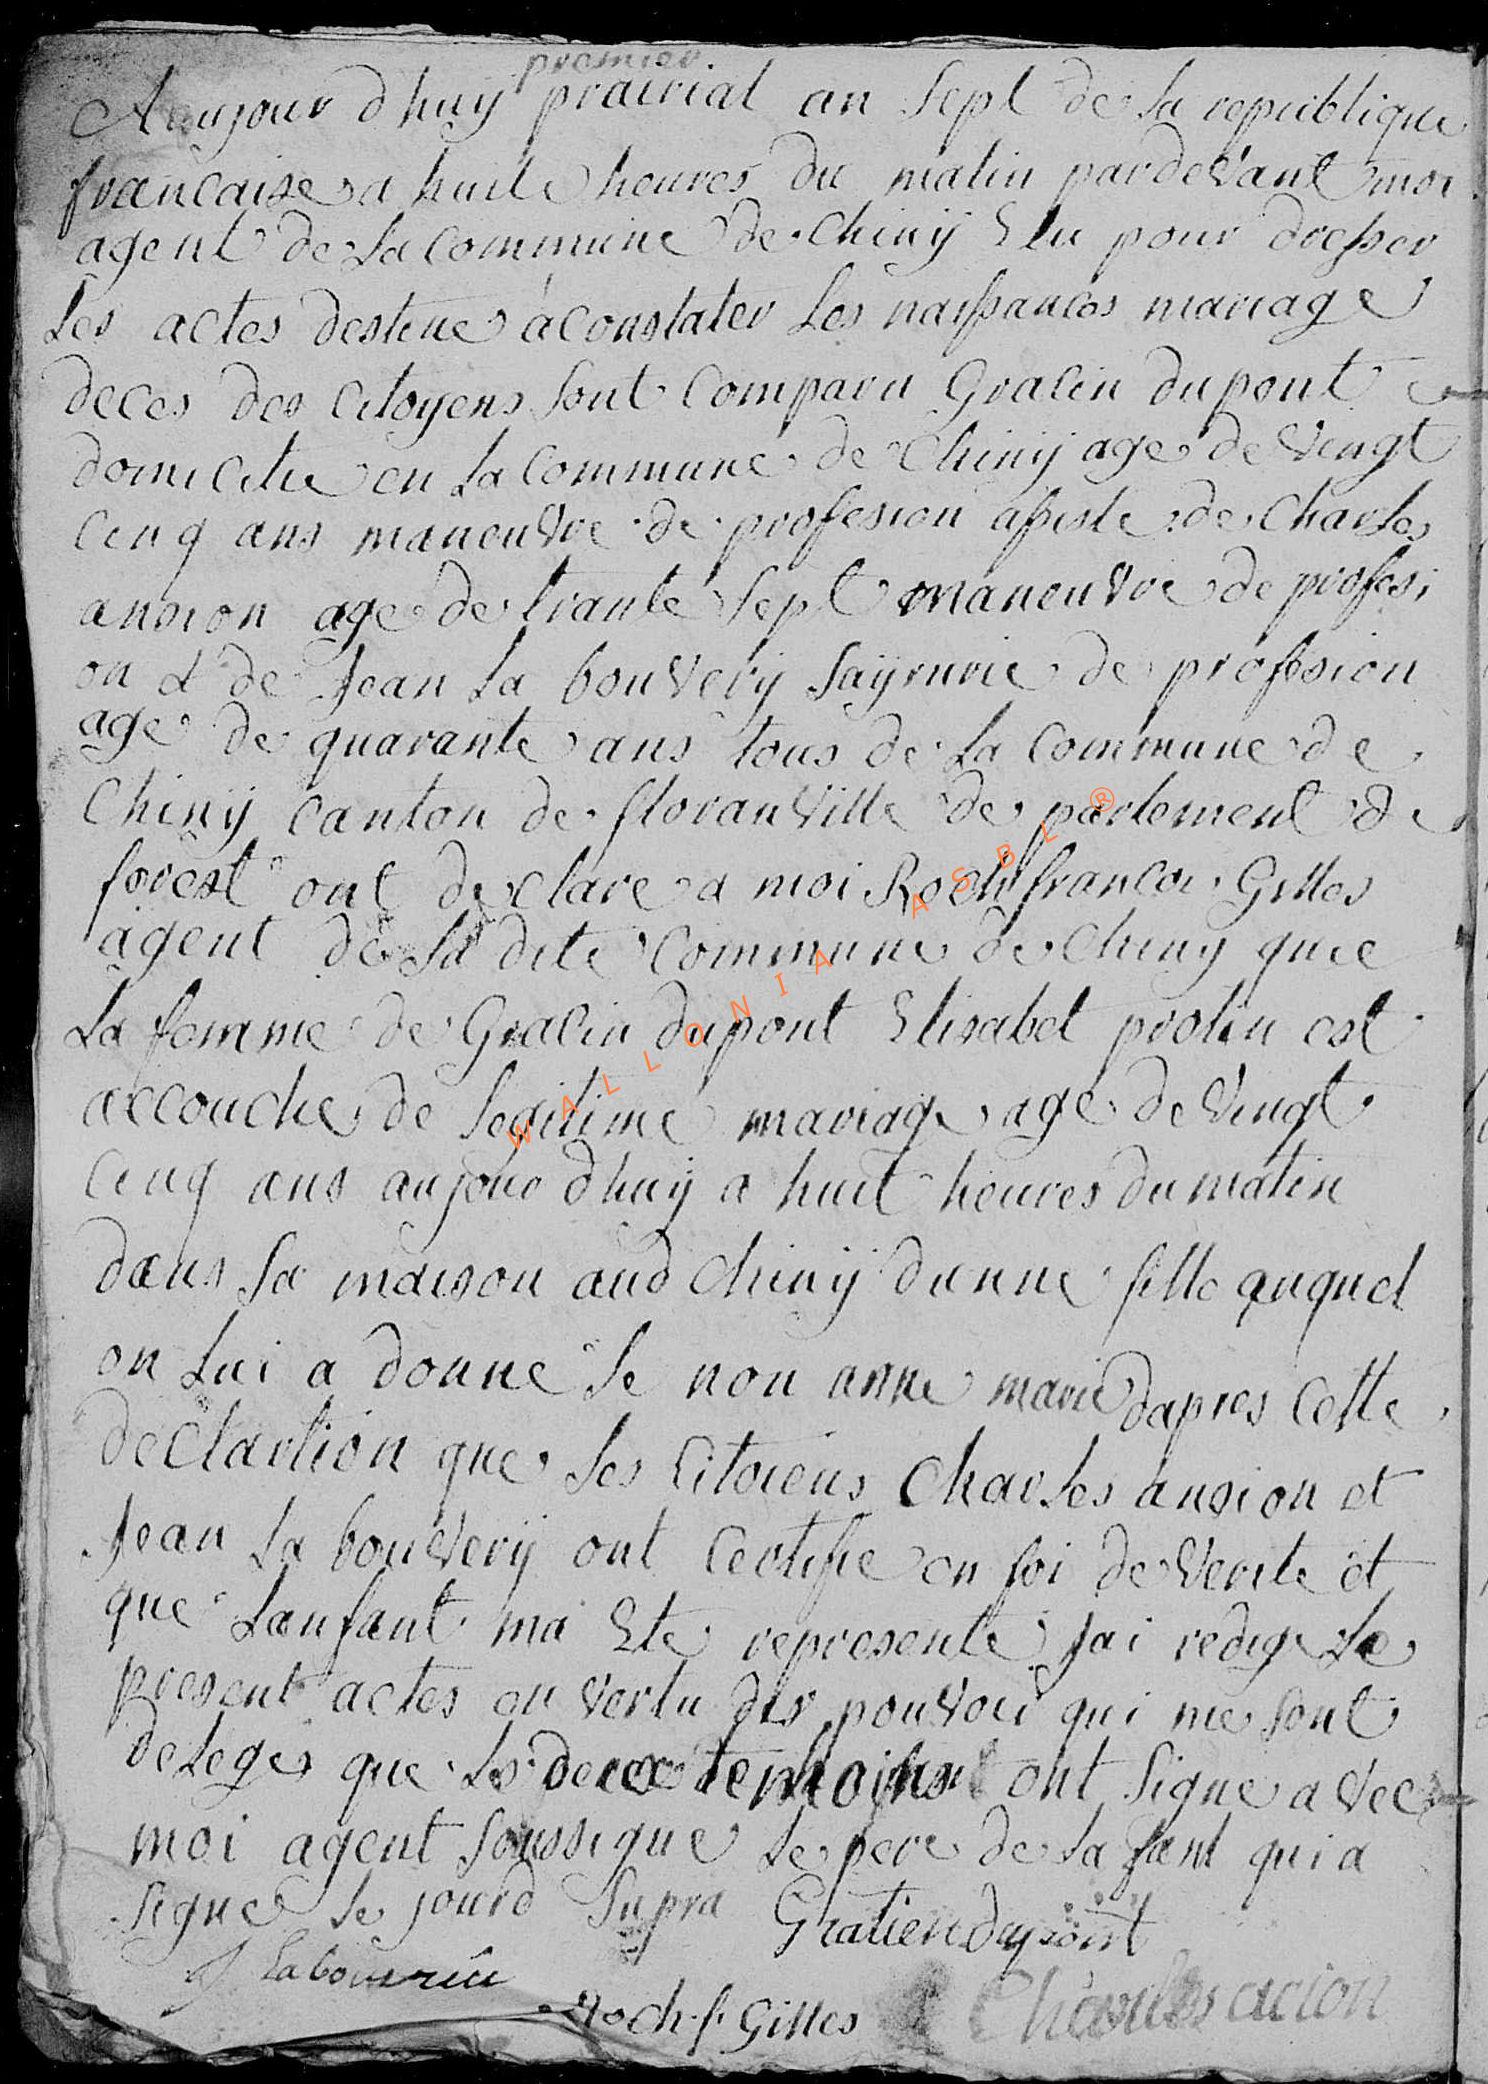 premier
Aujour dhuij prairial an Sept de la republique
francaise a huite heures du matin pardevant moi
agent de la commune de chinij Elu pour dresser
les actes destine a constater les naissances mariage
deces des citoyens sont comparu Gratin dupont
domicilie en la commune de chinij age de vingt
cinq ans maneuvre de profesion assiste de charles
ansion age de trante sept maneuvre de profesi
on & de Jean la bouverij de profesion
age de quarante ans tous de la commune de
chinij canton de floranville de partement de
forest ont declare a moi Roch francoi Gilles
agent de la dite commune de chiny que
la femme de Gratin dupont Elisabet protin est
accouche de legitime mariage age de vingt
cinq ans aujour dhuij a huit heures du matin
dans sa maison aud chinij dunne fille auquel
on lui a donne le non anne marie dapres cette
declartion que les citoiens charles ansion et
Jean la bouverij ont certifie en foi de verite et
que lanfant ma Ete represente jai redige le
present actes en vertu des pouvoir qui me sont
deleges que les deux temoins ont signe avec
moi agent soussigne le pere de la fant qui a
signe le jourd supra Gratien dupont
J labouverie
Roch f Gilles Charles acion
WALLONIA ASBL ®